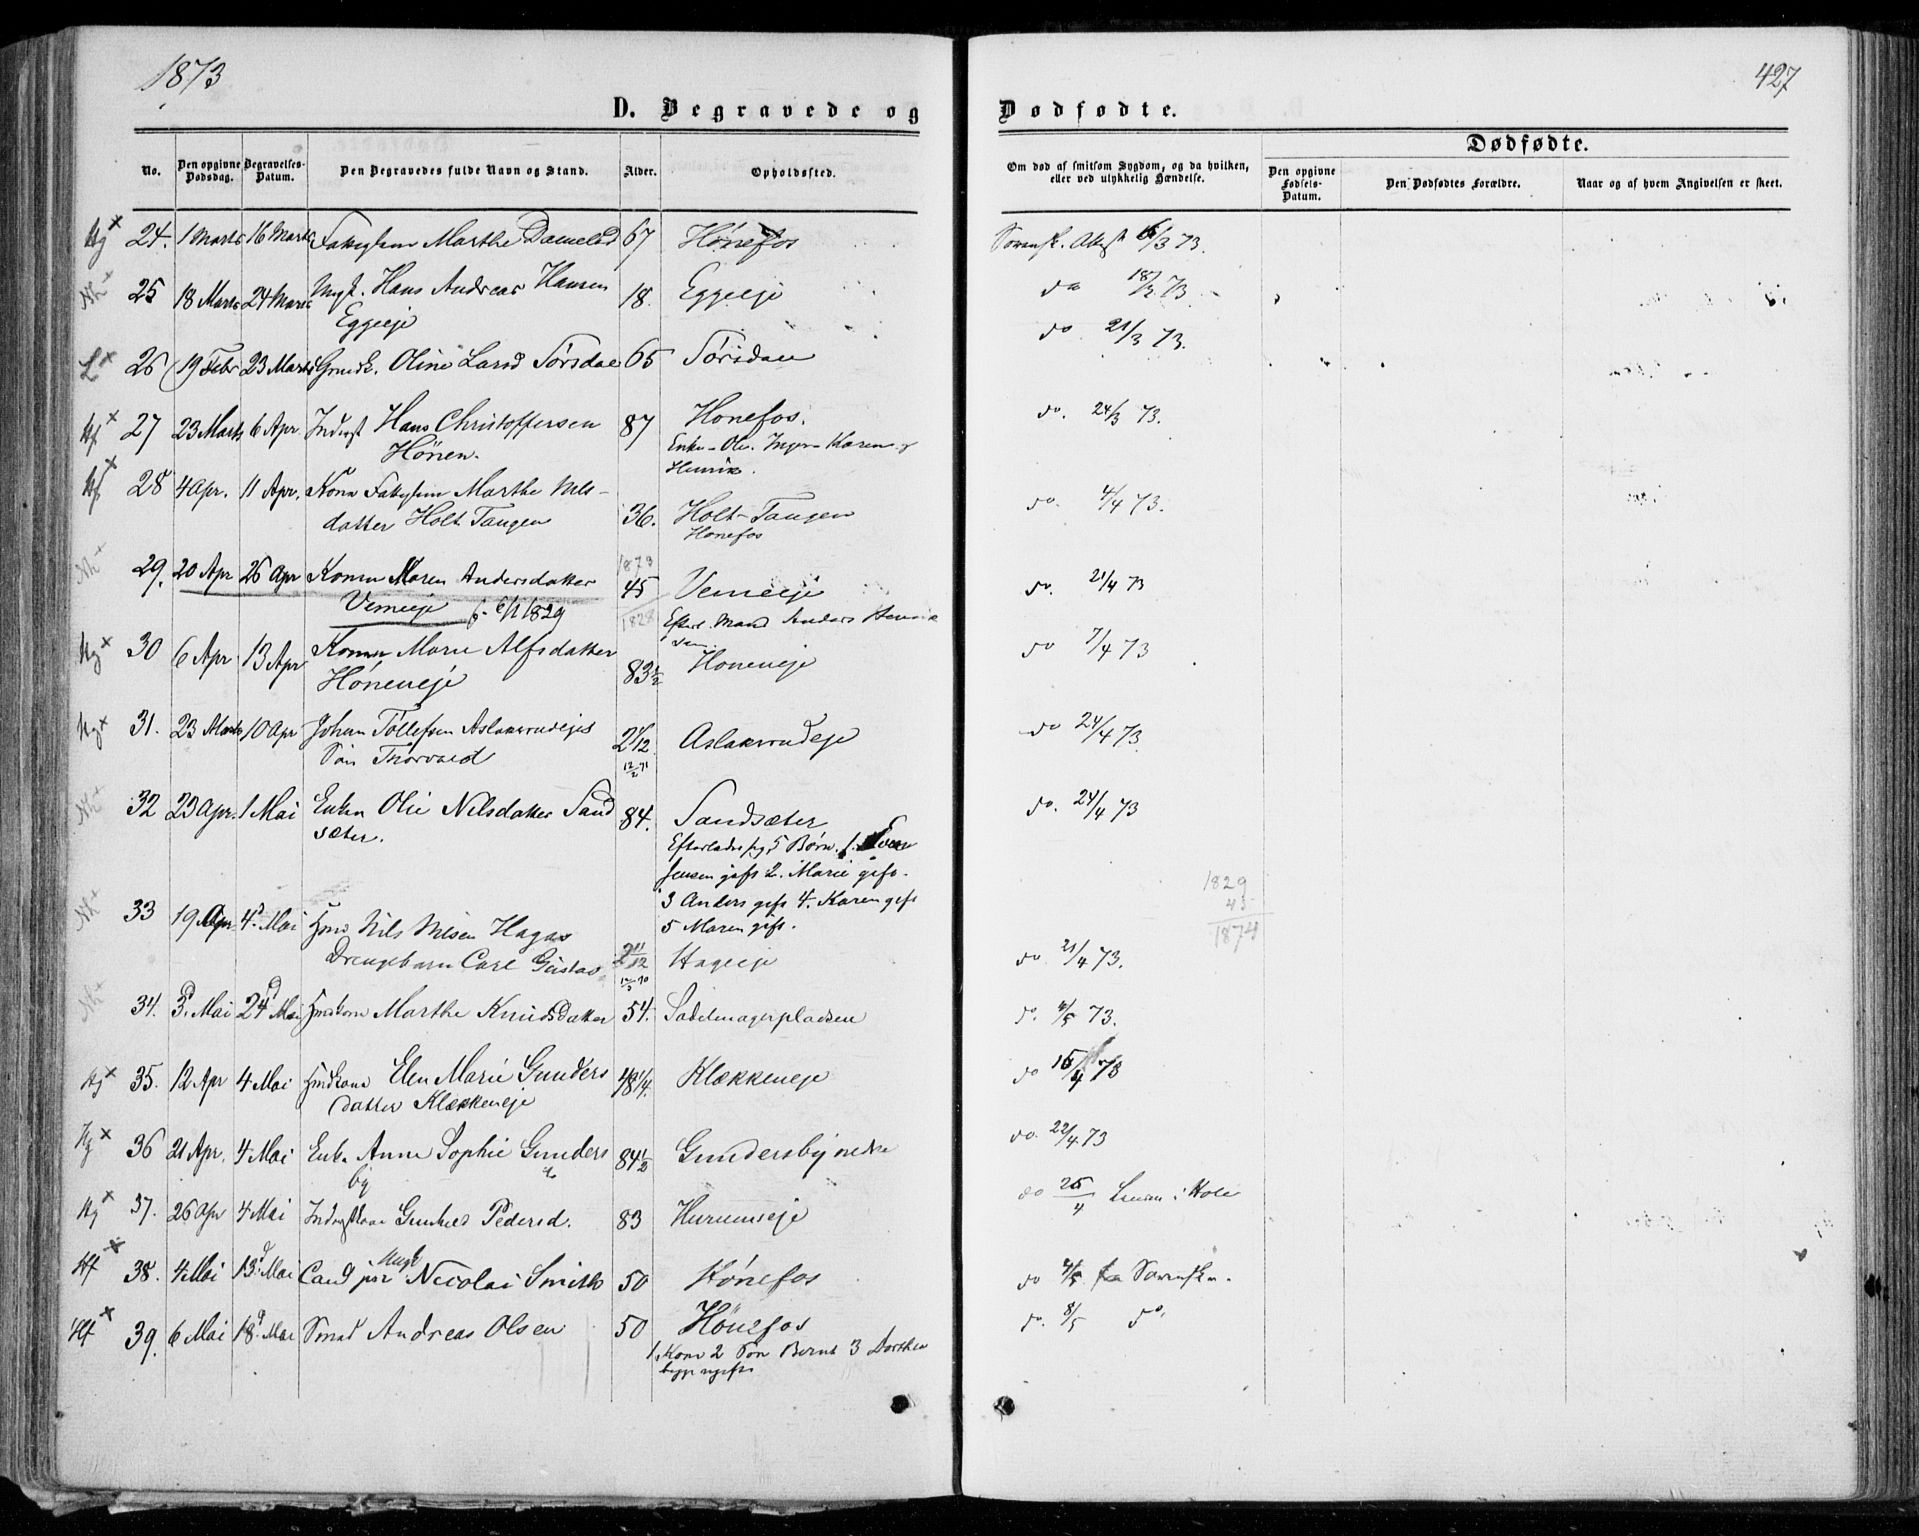 1873
427
D. Begravede og
Dødfødte.
No.
Den opgivne Dødsdag.
Begravelses-Datum.
Den Begravedes fulde Navn og Stand.
Alder.
Opholdssted.
Om død af smitsom Sygdom, og da hvilken, eller ved ulykkelig Hændelse.
Dødfødte.
Den opgivne Fødsels-Datum.
Den Dødfødtes Forældre.
Naar og af hvem Angivelsen er skeet.
24. 1 Marts 16 Marts Marthe 67 Hønefos 6/3 73.
25 18 Marts 24 Marts Ungk. Hans Andreas Hansen 18. Eggeeje do 18/3 73
Eggeeje
26 19 Febr 23 Marts Oline Larsd Sørsdal 65 Sørsdal do 21/3 73.
27 23 Marts 6 Apr Inderst Hans Christoffersen 87 Honefos. do. 24/3 73.
Hønen. Enke - Ole. Inger - Karen og
Henrik.
28 4 Apr. 11 Apr. Kone Marthe Nils- do. 4/4 73.
datter Holt Tangen 36. Holt-Tangen
Hønefos
29. 20 Apr 26 Apr Konen Maren Andersdatter 45 Vemeeje do. 21/4 73
1873
Vemeeje f. 6/1 1829
1828
Efterl. Mand Anders
30 6 Apr 13 Apr Konen Marie Alfsdatter 83 1/2 Honeneje do 7/4 73
Høneneje
31. 23 Marts 10 Apr Johan Tollefsen Aslaksrudejes 2 1/12 Aslaksrudeje do 24/4 73
Søn Thorvald
12/2 71
32 23 Apr. 1 Mai Enken Olie Nilsdatter Sand 84. Sandsæter do. 24/4 73
sæter.
Efterlader sig 5 Børn. 1. Even
Jensen gift 2. Marie gift.
3 Anders gift 4. Karen gift
5 Maren gift.
1829
45
1874
33 19 Apr 4d Mai Nils Nilsen Hagas
Drengebarn Carl Gustav 2 11/12 Hageeje do 21/4 73.
34. 3d Mai 24d Mai Marthe Knudsdatter 54. Sadelmagerpladsen do. 73.
35. 12 Apr 4 Mai Huskone Elen Marie Gunders 48 1/4. Klækkeneje do 15/4 73
datter Klækkeneje
36 21 Apr. 4 Mai Enke Anne Sophie Gunders 84 1/2 Gundersby nedre do. 22/4 73
by
37. 26 Apr 4 Mai Pedersd. 83 Hurumseje do 26/4 i Hole
38. 4 Mai 13d Mai Cand jur Ungk Nicolai Smith 50 Hønefos do
39. 6 Mai 18d Mai Smed Andreas Olsen 50 Hönefos do. 8/5 do.
1. Kone 2 Søn Bernt 3 Dorthea
begge ugifte